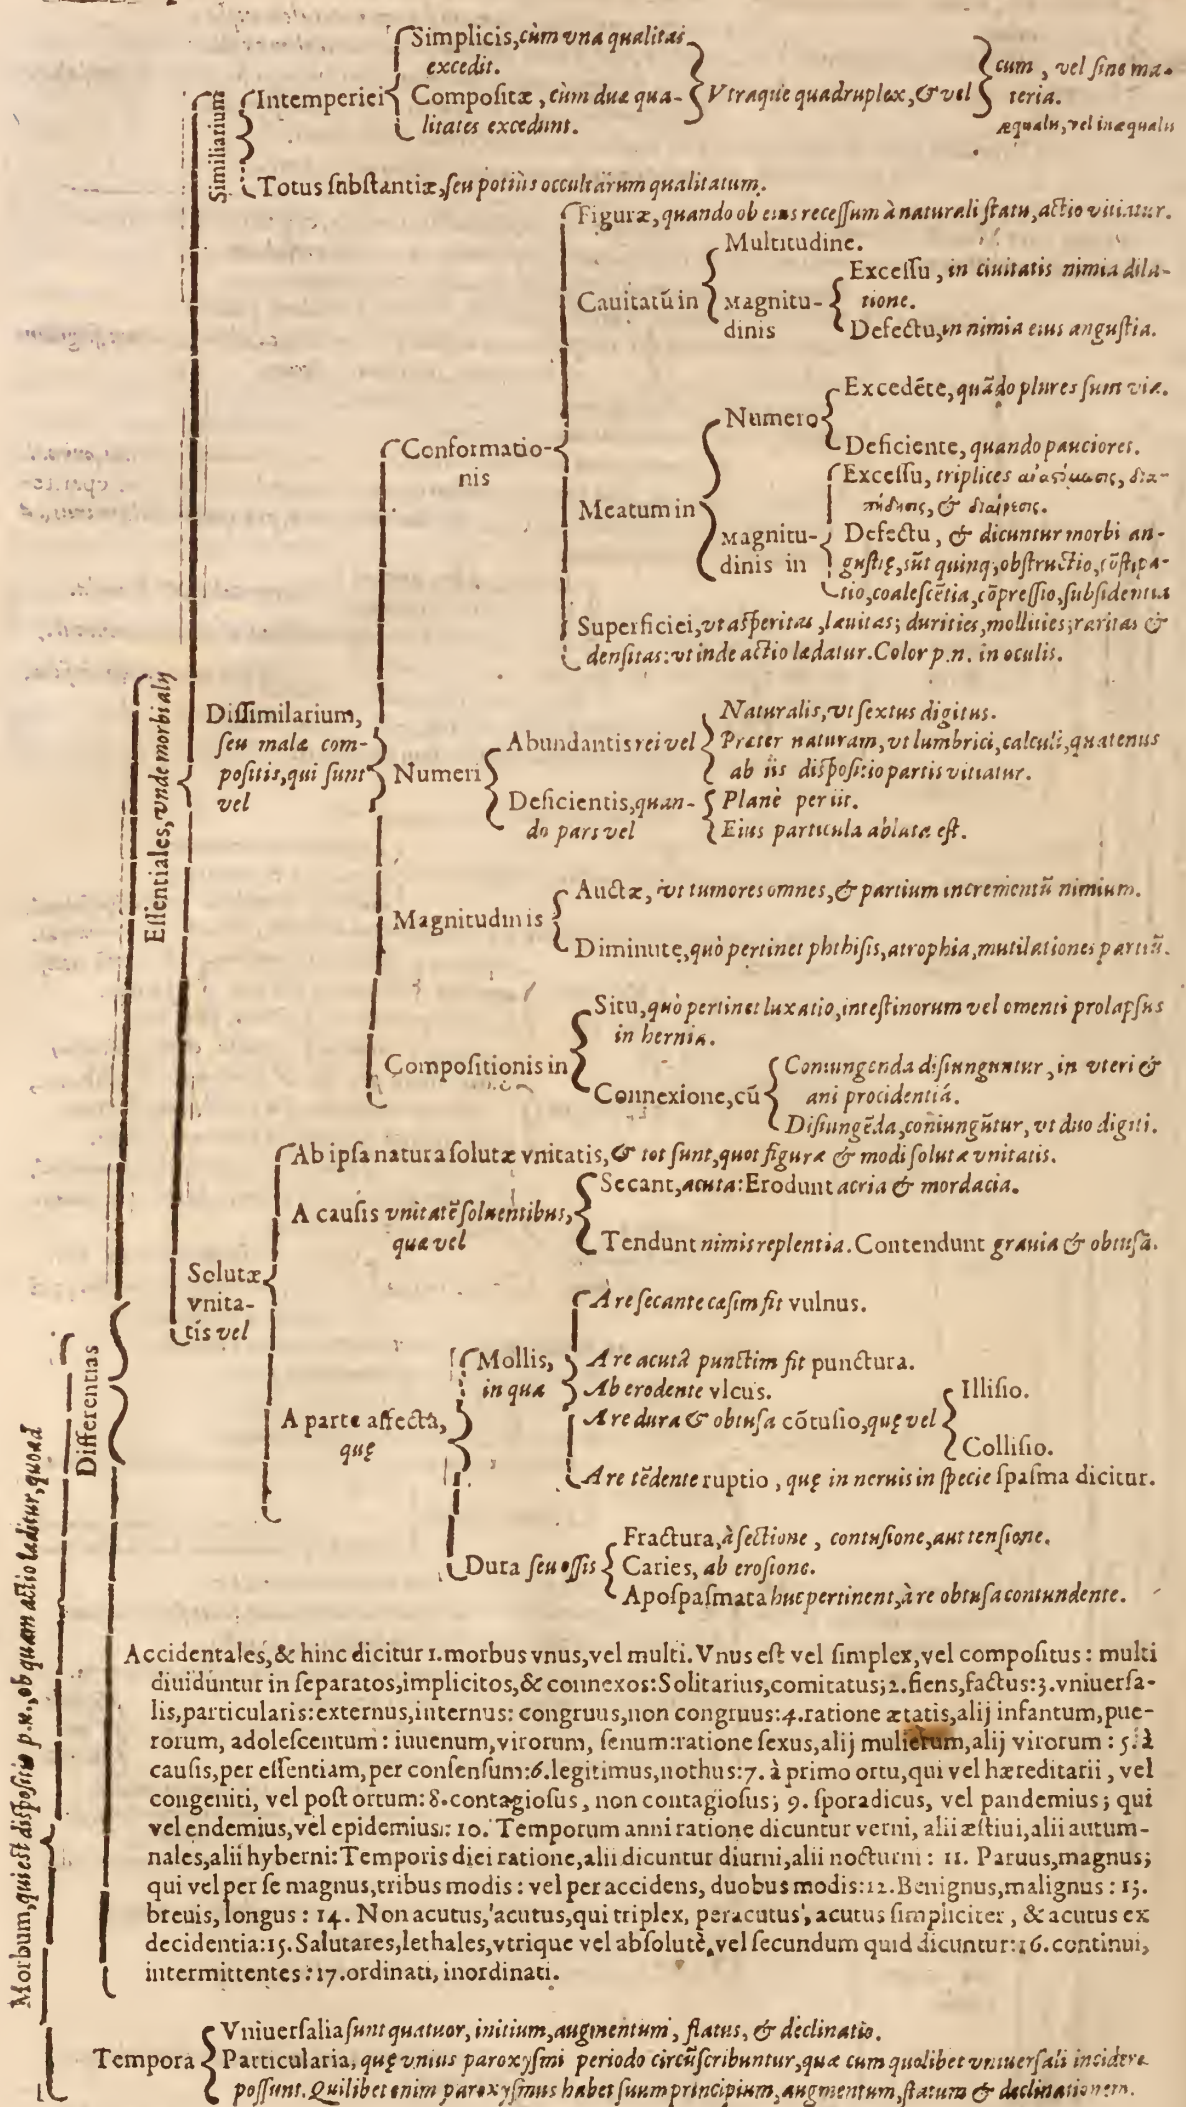 Simplicis, cùm vna qualitas
excedit.
Intemperiei
Compositæ, cùm duæ qua-
litates excedunt.
Vtraque quadruplex, & vel
cum, vel sine ma-
teria.
æqualis, vel inæqualis
Similiarium
Totus substantiæ, seu potiùs occultarum qualitatum.
Figuræ, quando ob eius recessum à naturali statu, actio vitiatur.
Multitudine.
Cauitatũ in
Magnitu-
dinis
Excessu, in ciuitatis nimia dila-
tione.
Defectu, in nimia eius angustia.
Conformatio-
nis
Numero
Excedẽte, quãdo plures sunt viæ.
Deficiente, quando pauciores.
Meatum in
Magnitu-
dinis in
Excessu, triplices ἀναστόμωσις, δια-
πήδησις, & διαίρεσις.
Defectu, & dicuntur morbi an-
gustię, sũt quinq, obstructio, cõstipa-
tio, coalescẽtia, cõpressio, subsidentia
Superficiei, vt asperitas, læuitas; durities, mollities; raritas &
densitas: vt inde actio lædatur. Color p.n. in oculis.
Essentiales, vnde morbi alij
Dissimilarium,
seu malæ com-
positis, qui sunt
vel
Numeri
Abundantis rei vel
Naturalis, vt sextus digitus.
Præter naturam, vt lumbrici, calculi, quatenus
ab iis dispositio partis vitiatur.
Deficientis, quan-
do pars vel
Planè periit.
Eius particula ablata est.
Magnitudinis
Auctæ, vt tumores omnes, & partium incrementũ nimium.
Diminutę, quò pertinet phthisis, atrophia, mutilationes partiũ.
Compositionis in
Situ, quò pertinet luxatio, intestinorum vel omenti prolapsus
in hernia.
Connexione, cũ
Coniungenda disiunguntur, in vteri &
ani procidentiâ.
Disiungẽda, coniungũtur, vt duo digiti.
Solutæ
vnita-
tis vel
Ab ipsa natura solutæ vnitatis, & tot sunt, quot figuræ & modi solutæ vnitatis.
A causis vnitatẽ soluentibus,
quæ vel
Secant, acuta: Erodunt acria & mordacia.
Tendunt nimis replentia. Contendunt grauia & obtusa.
A parte affecta,
quę
Mollis,
in qua
À re secante cæsim fit vulnus.
A re acutâ punctim fit punctura.
Ab erodente vlcus.
A re dura & obtusa cõtusio, quę vel
Illisio.
Collisio.
A re tẽdente ruptio, quę in neruis in specie spasma dicitur.
Dura seu ossis
Fractura, à sectione, contusione, aut tensione.
Caries, ab erosione.
Apospasmata huc pertinent, à re obtusa contundente.
Morbum, qui est dispositio p.n., ob quam actio læditur, quoad
Differentias
Accidentales, & hinc dicitur 1. morbus vnus, vel multi. Vnus est vel simplex, vel compositus: multi
diuiduntur in separatos, implicitos, & connexos: Solitarius, comitatus; 2. fiens, factus: 3. vniuersa-
lis, particularis: externus, internus: congruus, non congruus: 4. ratione ætatis, alij infantum, pue-
rorum, adolescentum: iuuenum, virorum, senum: ratione sexus, alij mulierum, alij virorum: 5. à
causis, per essentiam, per consensum: 6. legitimus, nothus: 7. à primo ortu, qui vel hæreditarii, vel
congeniti, vel post ortum: 8. contagiosus, non contagiosus; 9. sporadicus, vel pandemius; qui
vel endemius, vel epidemius: 10. Temporum anni ratione dicuntur verni, alii æstiui, alii autum-
nales, alii hyberni: Temporis diei ratione, alii dicuntur diurni, alii nocturni: 11. Paruus, magnus;
qui vel per se magnus, tribus modis: vel per accidens, duobus modis: 12. Benignus, malignus: 13.
breuis, longus: 14. Non acutus, acutus, qui triplex, peracutus, acutus simpliciter, & acutus ex
decidentia: 15. Salutares, lethales, vtrique vel absolutè, vel secundum quid dicuntur: 16. continui,
intermittentes: 17. ordinati, inordinati.
Tempora
Vniuersalia sunt quatuor, initium, augmentum, status, & declinatio.
Particularia, quę vnius paroxysmi periodo circũscribuntur, quæ cum quolibet vniuersali incidere
possunt. Quilibet enim paroxysmus habet suum principium, augmentum, statum & declinationem.